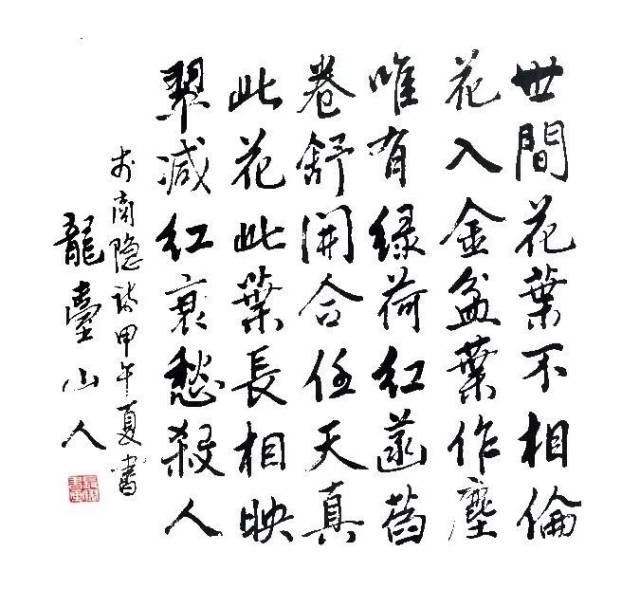 世間花葉不相倫
花入金盆葉作塵
唯有緑荷紅菡萏
卷舒開合任天真
此花此葉長相映
翠减紅衰愁殺人
李商隐詩甲午夏書
龍臺山人